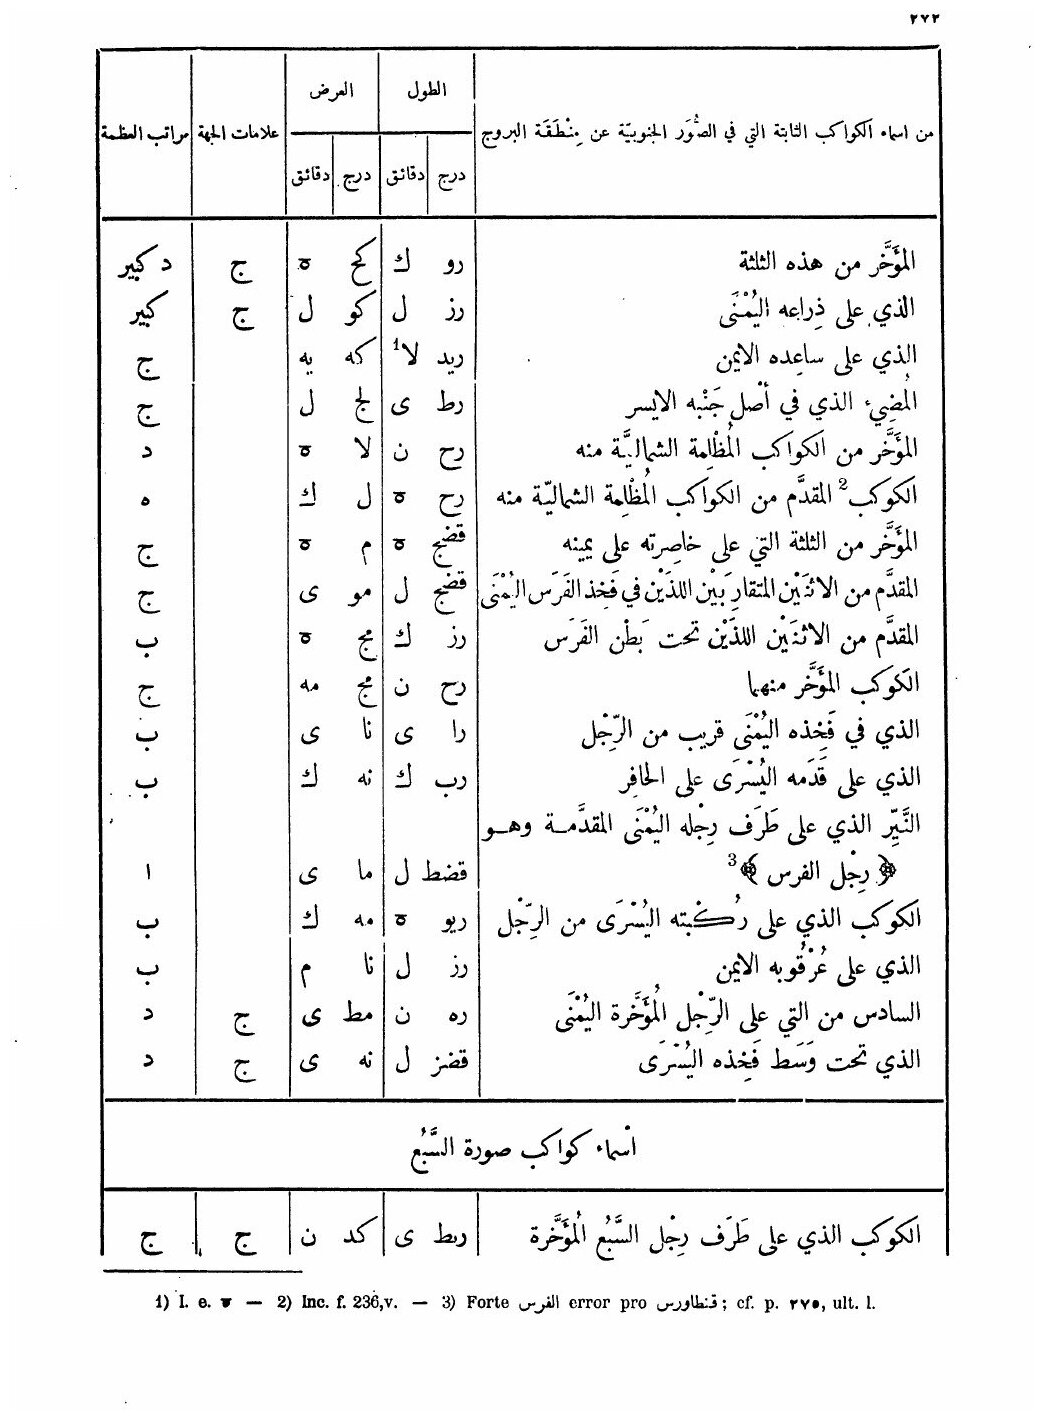 ٢٧٢
من اسماء الكواكب الثابتة التي في الصُّوَر الجنوبيّة عن مِنْطَقَة البروج | الطول | العرض | علامات الجهة | مراتب العظمة
درج | دقائق | درج | دقائق
المؤَخَّر من هذه الثلثة | رو | ك | كح | ه | ج | د كبير
الذي على ذِراعه اليُمْنَى | رز | ل | كو | ل | ج | كبير
الذي على ساعِده الايمن | ريد | لا¹ | كه | يه | ج
المُضِيء الذي في أصْل جَنْبه الايسر | رط | ى | لج | ل | ج
المؤَخَّر من الكواكب المُظْلِمة الشماليَّة منه | رح | ن | لا | ه | د
الكوكب² المقدَّم من الكواكب المُظْلِمة الشماليّة منه | رح | ه | ل | ك | ه
المؤَخَّر من الثلثة التي على خاصِرته على يمينه | قضح | ه | م | ه | ج
المقدَّم من الاثنَيْن المتقاربَيْن اللذَيْن في فَخِذ الفَرَس اليُمْنَى | قضح | ل | مو | ى | ج
المقدَّم من الاثنَيْن اللذَيْن تحت بَطْن الفَرَس | رز | ك | مج | ه | ب
الكوكب المؤَخَّر منهما | رح | ن | مج | مه | ج
الذي في فَخِذه اليُمْنَى قريب من الرِّجْل | را | ى | نا | ى | ب
الذي على قَدَمه اليُسْرَى على الحافِر | رب | ك | نه | ك | ب
النَّيِّر الذي على طَرَف رِجْله اليُمْنَى المقدَّمـة وهـو
﴿رِجْل الفرس﴾³ | قضط | ل | ما | ى | ا
الكوكب الذي على رُكْبته اليُسْرَى من الرِّجْل | ريو | ه | مه | ك | ب
الذي على عُرْقُوبه الايمن | رز | ل | نا | م | ب
السادس من التي على الرِّجْل المُؤَخَّرة اليُمْنَى | ره | ن | مط | ى | ج | د
الذي تحت وَسَط فَخِذه اليُسْرَى | قضز | ل | نه | ى | ج | د
اسْماء كواكب صورة السَّبُع
الكوكب الذي على طَرَف رِجْل السَّبُع المُؤَخَّرة | ربط | ى | كد | ن | ج | ج
1) I. e. ه — 2) Inc. f. 236,v. — 3) Forte الفرس error pro قنطاورس; cf. p. ٢٧٥, ult. l.